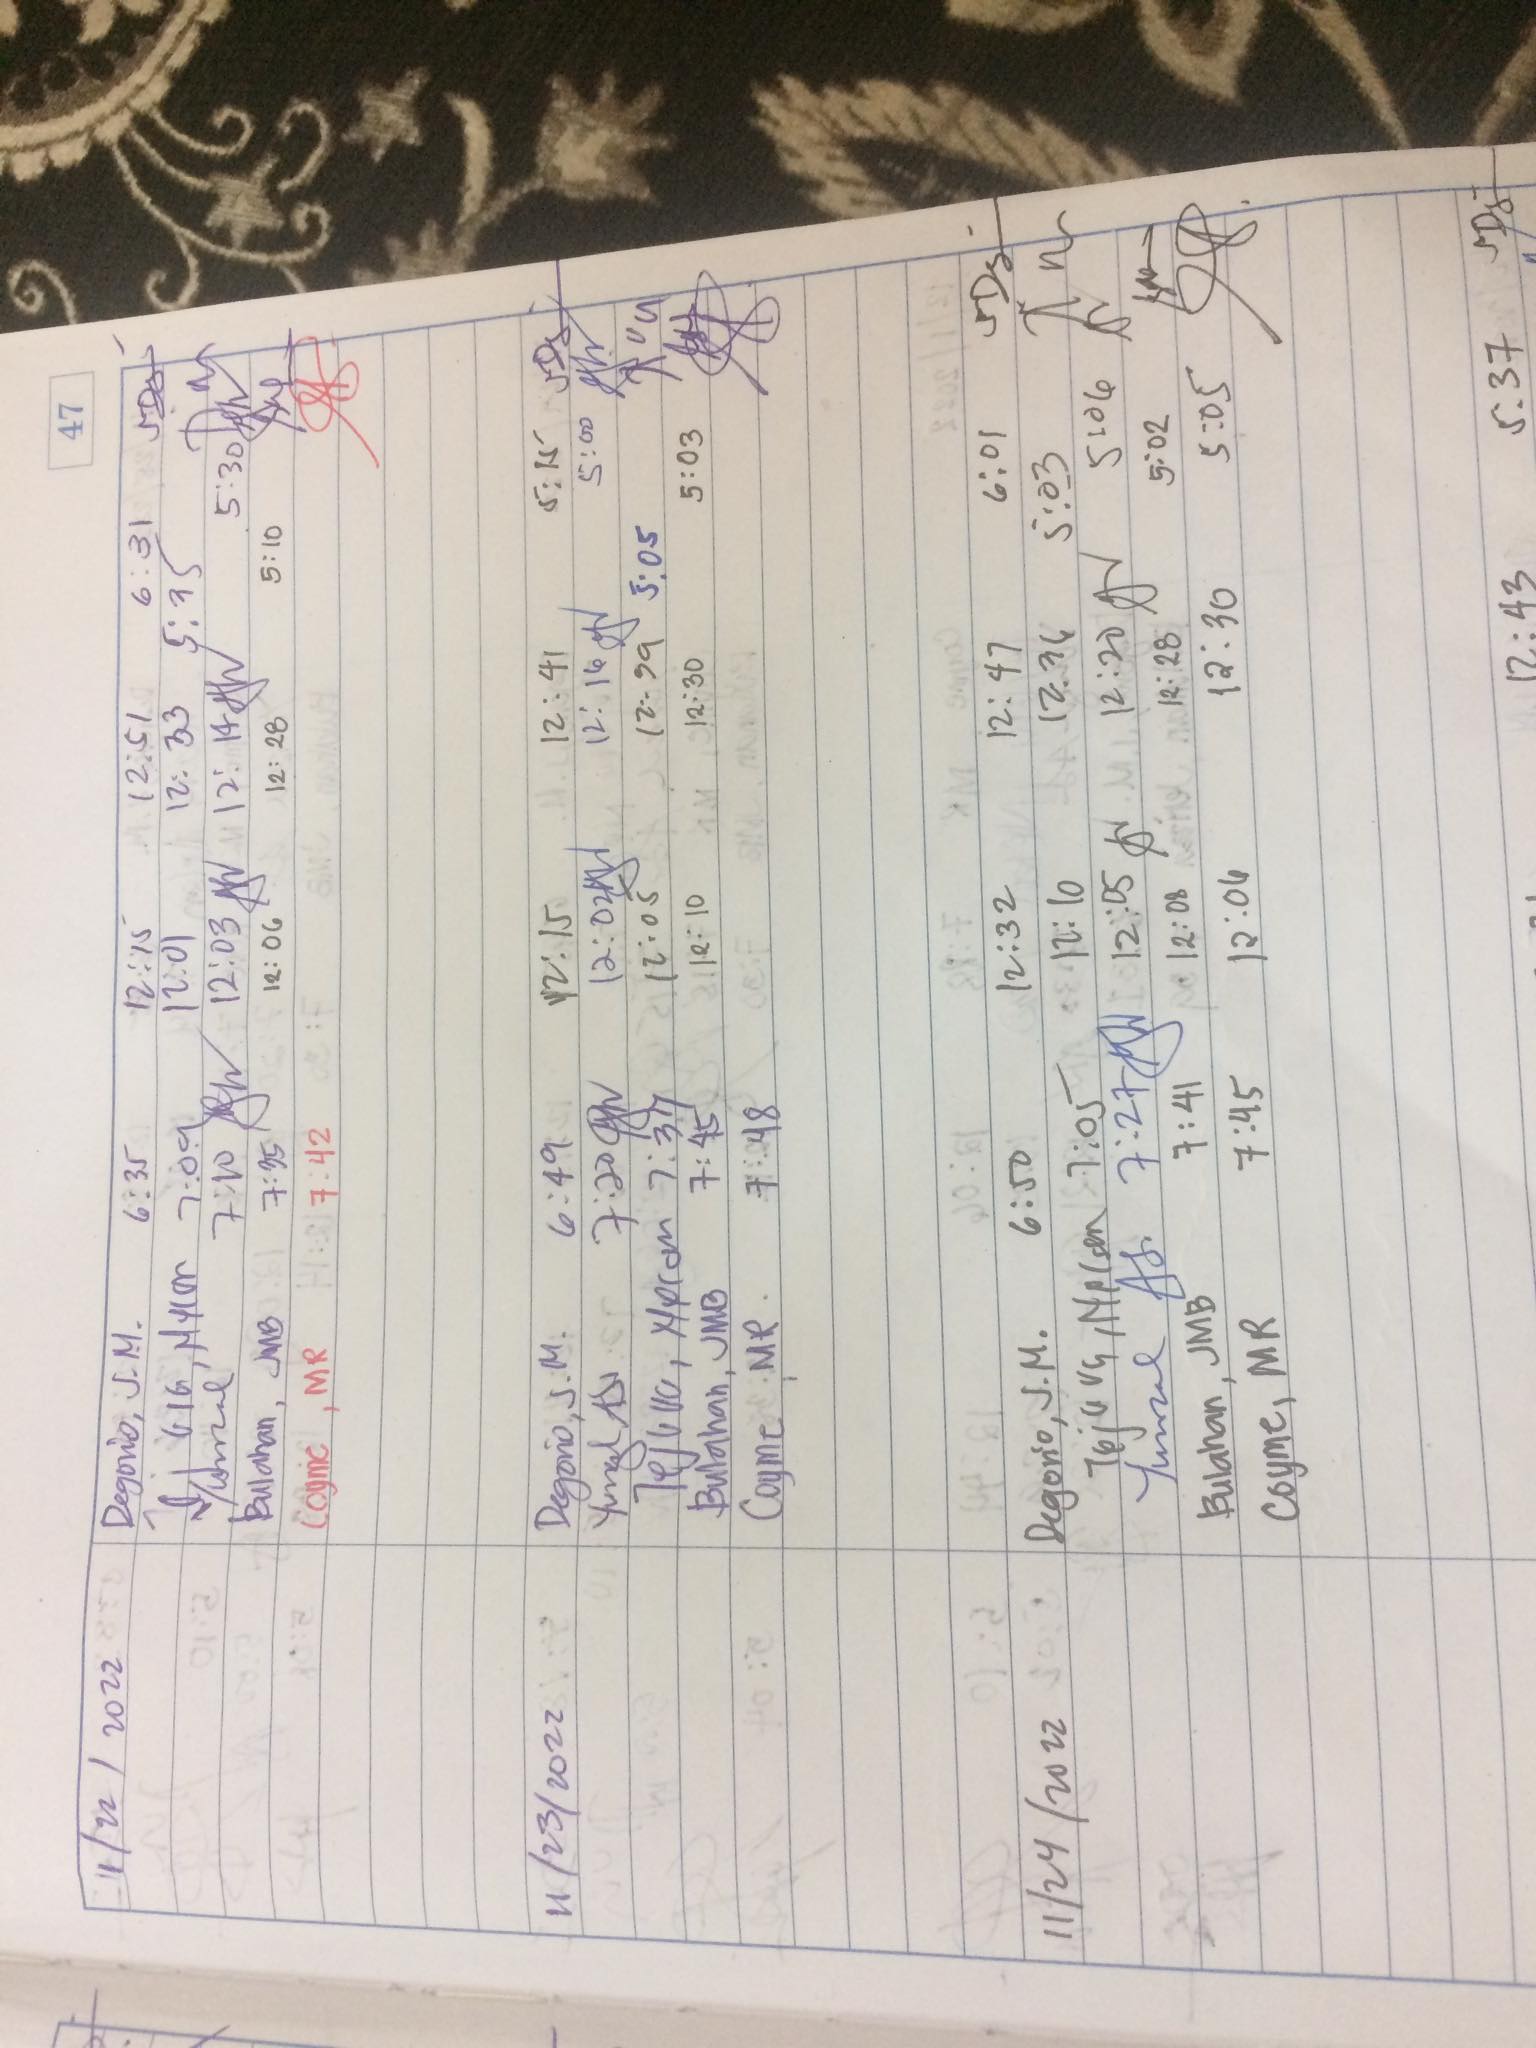 47
11/22/2022 Degorio, J.M. 6:35 12:15 12:51 6:31
7:09 12:01 12:33 5:35
Yumul 7:10 12:03 12:14 5:30
Bulahan, JMB 7:35 12:06 12:28 5:10
Coyme, MR 7:42
11/23/2022 Degorio, J.M. 6:49 12:15 12:41 5:15
7:20 12:02 12:16 5:00
7:37 12:05 12:29 5:05
Bulahan, JMB 7:45 12:10 12:30 5:03
Coyme, MR. 7:48
11/24/2022 Degorio, J.M. 6:50 12:32 12:47 6:01
7:05 12:10 12:36 5:03
7:27 12:05 12:20 5:06
Bulahan, JMB 7:41 12:08 12:28 5:02
Coyme, MR 7:45 12:06 12:30 5:05
12:43 5:37